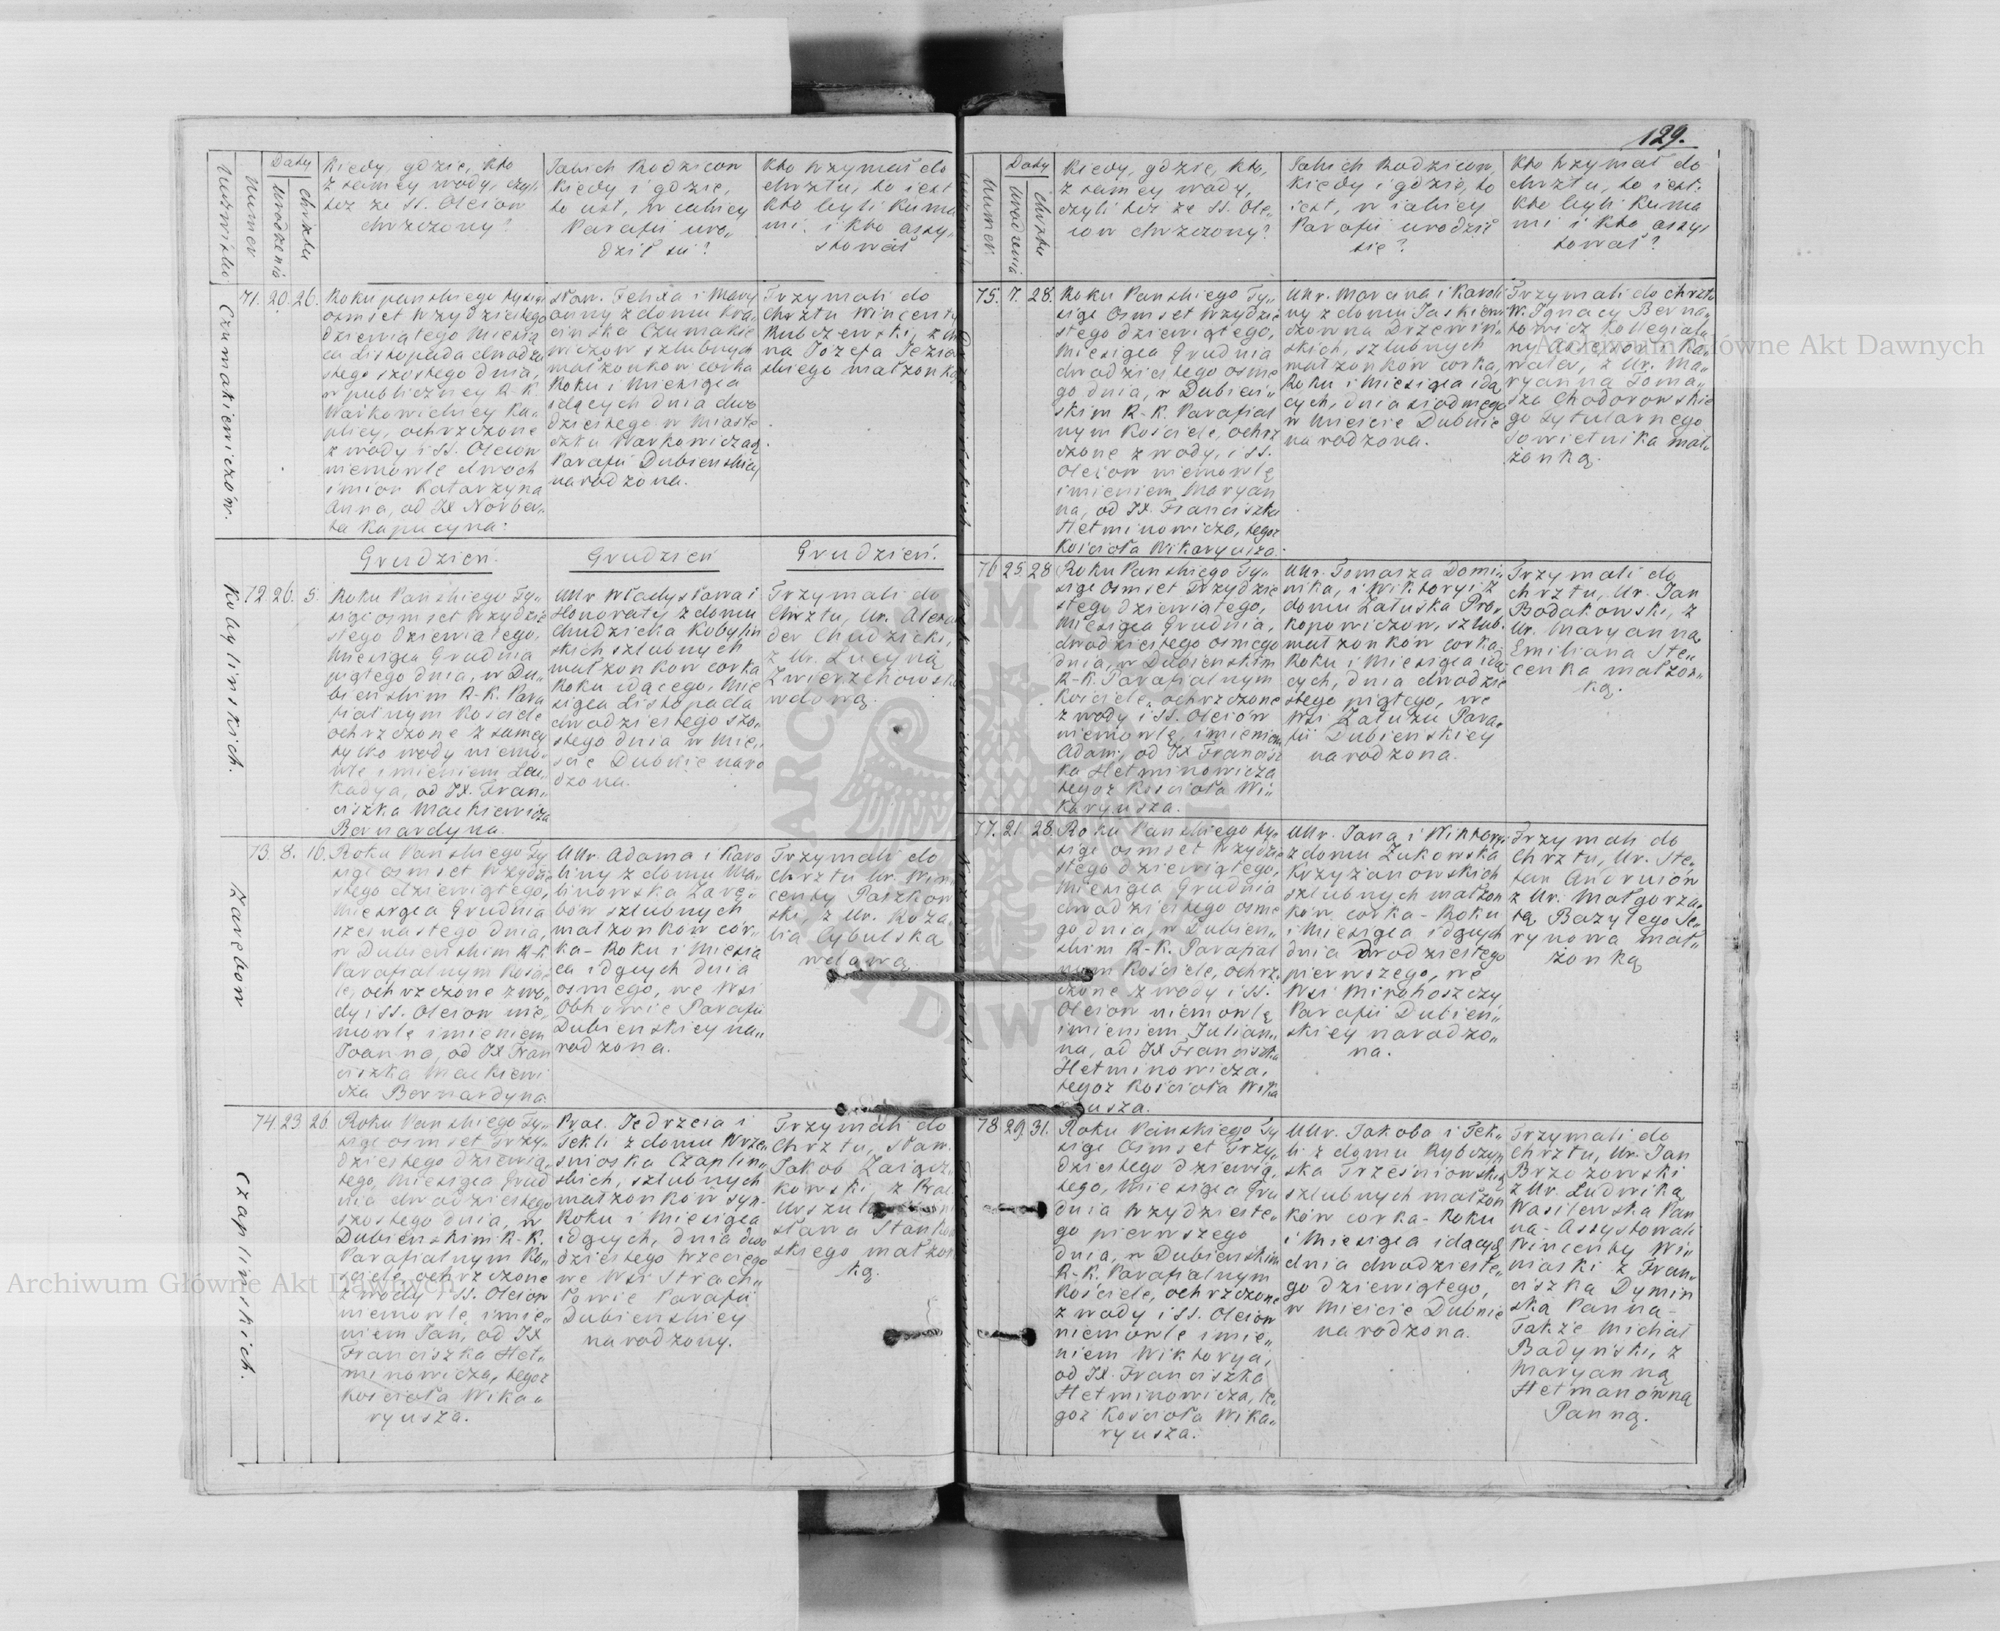 129.
Nazwisko
Numer
Daty
Urodzenia
Chrztu
Kiedy, gdzie, kto
z samey wody, czyli
też ze SS. Oleiow
chrzczony?
Jakich Rodzicow
kiedy i gdzie,
to iest, w iakiey
Parafii uro„
dził się?
Kto trzymał do
chrztu, to iest
kto byli Kuma
mi i kto assy„
stował
Czumakiewiczów.
71. 20. 26.
Roku pańskiego tysiąc
osmset trzydziestego
dziewiątego Miesią
ca Listopada dwudzie
stego szostego dnia,
w publiczney R-K.
Warkowickiey Ka„
plicy, ochrzczone
z wody i SS. Oleiow
niemowle dwoch
imion Katarzyna
Anna, od JX Norber„
ta Kapucyna.
Sław. Felixa i Mary
anny z domu
Czumakie
wiczow szlubnych
małżonkow corka
Roku i Miesiąca
idących dnia dwu
dziestego w Miaste
czku Warkowiczach
Parafii Dubienskiey
narodzona.
Trzymali do
Chrztu Wincenty
Kubczewski, z An
na Józefa Jezior
skiego małżonką
Grudzień. Grudzień Grudzień.
Kobylinskich.
72 26. 5.
Roku Pańskiego Ty„
siąc osmset trzydzie
stego dziewiątego,
Miesiąca Grudnia
piątego dnia, w Du„
bienskim R-K. Para
fialnym Kościele
ochrzczone z samey
tylko wody niemo„
wle imieniem Leo„
kadya, od JX. Fran„
ciszka Mackiewicza
Bernardyna.
UUr Władysława i
Honoraty z domu
Chudzicka Kobylin
skich szlubnych
małżonkow corka
Roku idącego, Mie
siąca Listopada
dwudziestego szo„
stego dnia w Mie„
scie Dubnie naro
dzona.
Trzymali do
Chrztu, Ur. Alexan
der Chudzicki,
z Ur. Lucyną
Zwierzchowską
wdową.
Zarębow
73. 8. 16.
Roku Pańskiego Ty
siąc osmset trzydzie
stego dziewiątego,
Miesiąca Grudnia
szesnastego dnia,
w Dubienskim R-K
Parafialnym Kości
le, ochrzczone z wo„
dy i SS. Oleiow nie„
mowle imieniem
Joanna, od JX Fran
ciszka Mackiewi
cza Bernardyna.
UUr. Adama i Karo
liny z domu Ma„
linowska Zarę„
bów szlubnych
małżonków cor„
ka - Roku i Miesią
ca idących dnia
osmego, we Wsi
Obhowie Parafii
Dubienskiey na„
rodzona.
Trzymali do
Chrztu Ur. Win
centy Paszkow
ski, z Ur. Roza
lia Cybulską
wdową
Czaplinskich.
74. 23. 26.
Roku Pańskiego Ty„
siąc osmset trzy„
dziestego dziewią„
tego, Miesiąca Grud
nia dwudziestego
szostego dnia, w
Dubienskim R-K.
Parafialnym Ko„
sciele, ochrzczone
z wody i SS. Oleiow
niemowle imie„
niem Jan, od JX
Franciszka Het„
minowicza, tegoż
Kościoła Wika„
ryusza.
Prac. Jędrzeia i
Tekli z domu Wrze
sniowska Czaplin„
skich, szlubnych
małżonków syn-
Roku i Miesiąca
idących, dnia dwu
dziestego trzeciego
we Wsi Strach„
łowie Parafii
Dubienskiey
narodzony.
Trzymali do
Chrztu, Sław.
Jakób
z Prac.
Urszulą
sława
skiego małżon
ką.
Numer
Daty
Urodzenia
Chrztu
Kiedy, gdzie, kto,
z samey wody,
czyli też ze SS. Ole„
iow chrzczony?
Jakich Rodzicow,
kiedy i gdzie, to
iest, w iakiey
Parafii urodził
się?
Kto trzymał do
chrztu, to iest:
kto byli Kuma
mi i kto assy„
stował?
75. 7. 28.
Roku Pańskiego Ty„
siąc Osmset trzydzie
stego dziewiątego,
Miesiąca Grudnia
dwudziestego osme
go dnia, w Dubien„
skim R-K. Parafial
nym Kościele, ochrz
czone z wody, i SS.
Oleiow niemowlę
imieniem Maryan
na, od JX. Franciszka
Hetminowicza, tegoż
Kościoła Wikaryusza.
UUr. Marcina i Karoli
ny z domu Jaskiewi
czowna Drzewin„
skich, szlubnych
małżonków corka,
Roku i Miesiąca idą
cych, dnia siodmego
w Mieście Dubnie
narodzona.
Trzymali do chrztu
W. Ignacy Berna„
towicz Kollegial„
ny Assessor Ka„
waler, z Ur. Ma„
ryanna Toma„
sza Chodorowskie
go Tytularnego
Sowietnika mał„
żonką.
76 25. 28
Roku Pańskiego Ty„
siąc Osmset Trzydzie
stego dziewiątego,
Miesiąca Grudnia,
dwudziestego osmego
dnia, w Dubienskim
R-K. Parafialnym
Kościele, ochrzczone
z wody i SS. Oleiów
niemowlę, imieniem
Adam, od JX Francisz
ka Hetminowicza
tegoż Kościoła Wi„
karyusza.
UUr. Tomasza Domi„
nika, i Wiktoryi z
domu Załuska Pro„
kopowiczow, szlub.
małżonków corka,
Roku i Miesiąca idą
cych, dnia dwudzie
stego piątego, we
Wsi Załużu Para„
fii Dubienskiey
narodzona.
Trzymali do
chrztu, Ur. Jan
Bodakowski, z
Ur. Maryanną
Emiliana Ste„
cenka małżon„
ką.
77. 21. 28.
Roku Pańskiego ty„
siąc osmset trzydzie
stego dziewiątego,
Miesiąca Grudnia
dwudziestego osme
go dnia, w Dubien„
skim R-K. Parafial
nym Kościele, ochrz
czone z wody i SS.
Oleiow niemowlę
imieniem Julian„
na, od JX Franciszka
Hetminowicza,
tegoż Kościoła Wika
ryusza.
UUr. Jana i Wiktoryi
z domu Zukowska
Krzyżanowskich
szlubnych małżon
ków corka - Roku
i Miesiąca idących
dnia dwudziestego
pierwszego, we
Wsi Mirohoszczy
Parafii Dubien„
skiey narodzo„
na.
Trzymali do
Chrztu, Ur. Ste„
fan Andrusiów
z Ur. Małgorza„
tą Bazylego Se„
rynowa mał„
żonką
78 29. 31.
Roku Pańskiego Ty
siąc Osmset Trzy„
dziestego dziewią„
tego, Miesiąca Gru
dnia trzydzieste„
go pierwszego
dnia, w Dubienskim
R-K. Parafialnym
Kościele, ochrzczone
z wody i SS. Oleiow
niemowle imie„
niem Wiktorya,
od JX. Franciszka
Hetminowicza, te„
goż Kościoła Wika„
ryusza.
UUr. Jakoba i Tek„
li z domu Rybczyn
ska Trześniowskich
szlubnych małżon
ków corka - Roku
i Miesiąca idących
dnia dwudzieste„
go dziewiątego,
w Mieście Dubnie
narodzona.
Trzymali do
Chrztu, Ur. Jan
Brzozowski
z Ur. Ludwiką
Wasilewska Pan
na - Assystowali
Wincenty Wi„
niaski z Fran„
ciszką Dymin
ską Panna -
Także Michał
Badyński, z
Maryanną
Hetmanówną
Panną.
Archiwum Główne Akt Dawnych
Archiwum Główne Akt Dawnych